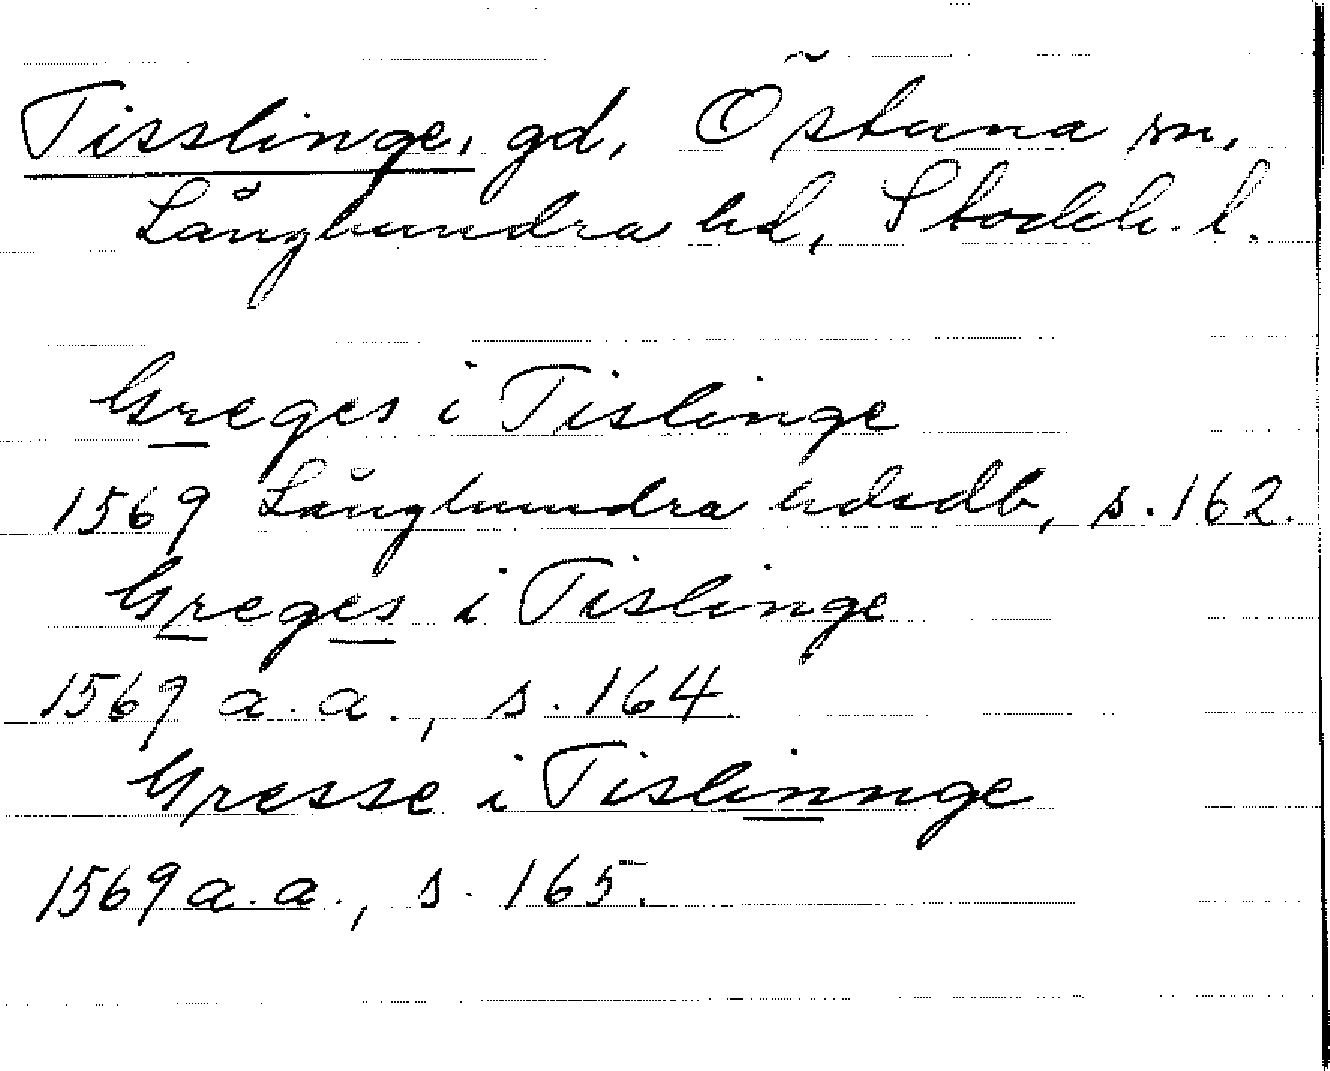 Tisslinge, gd, Östuna sn,
Långhundra hd, Stockh. l.
Greges i Tislinge
1569 Långhundra hdsdb, s. 162.
Greges i Tislinge
1569 a. a., s. 164
Gresse i Tislinnge
1569 a. a., s. 165.